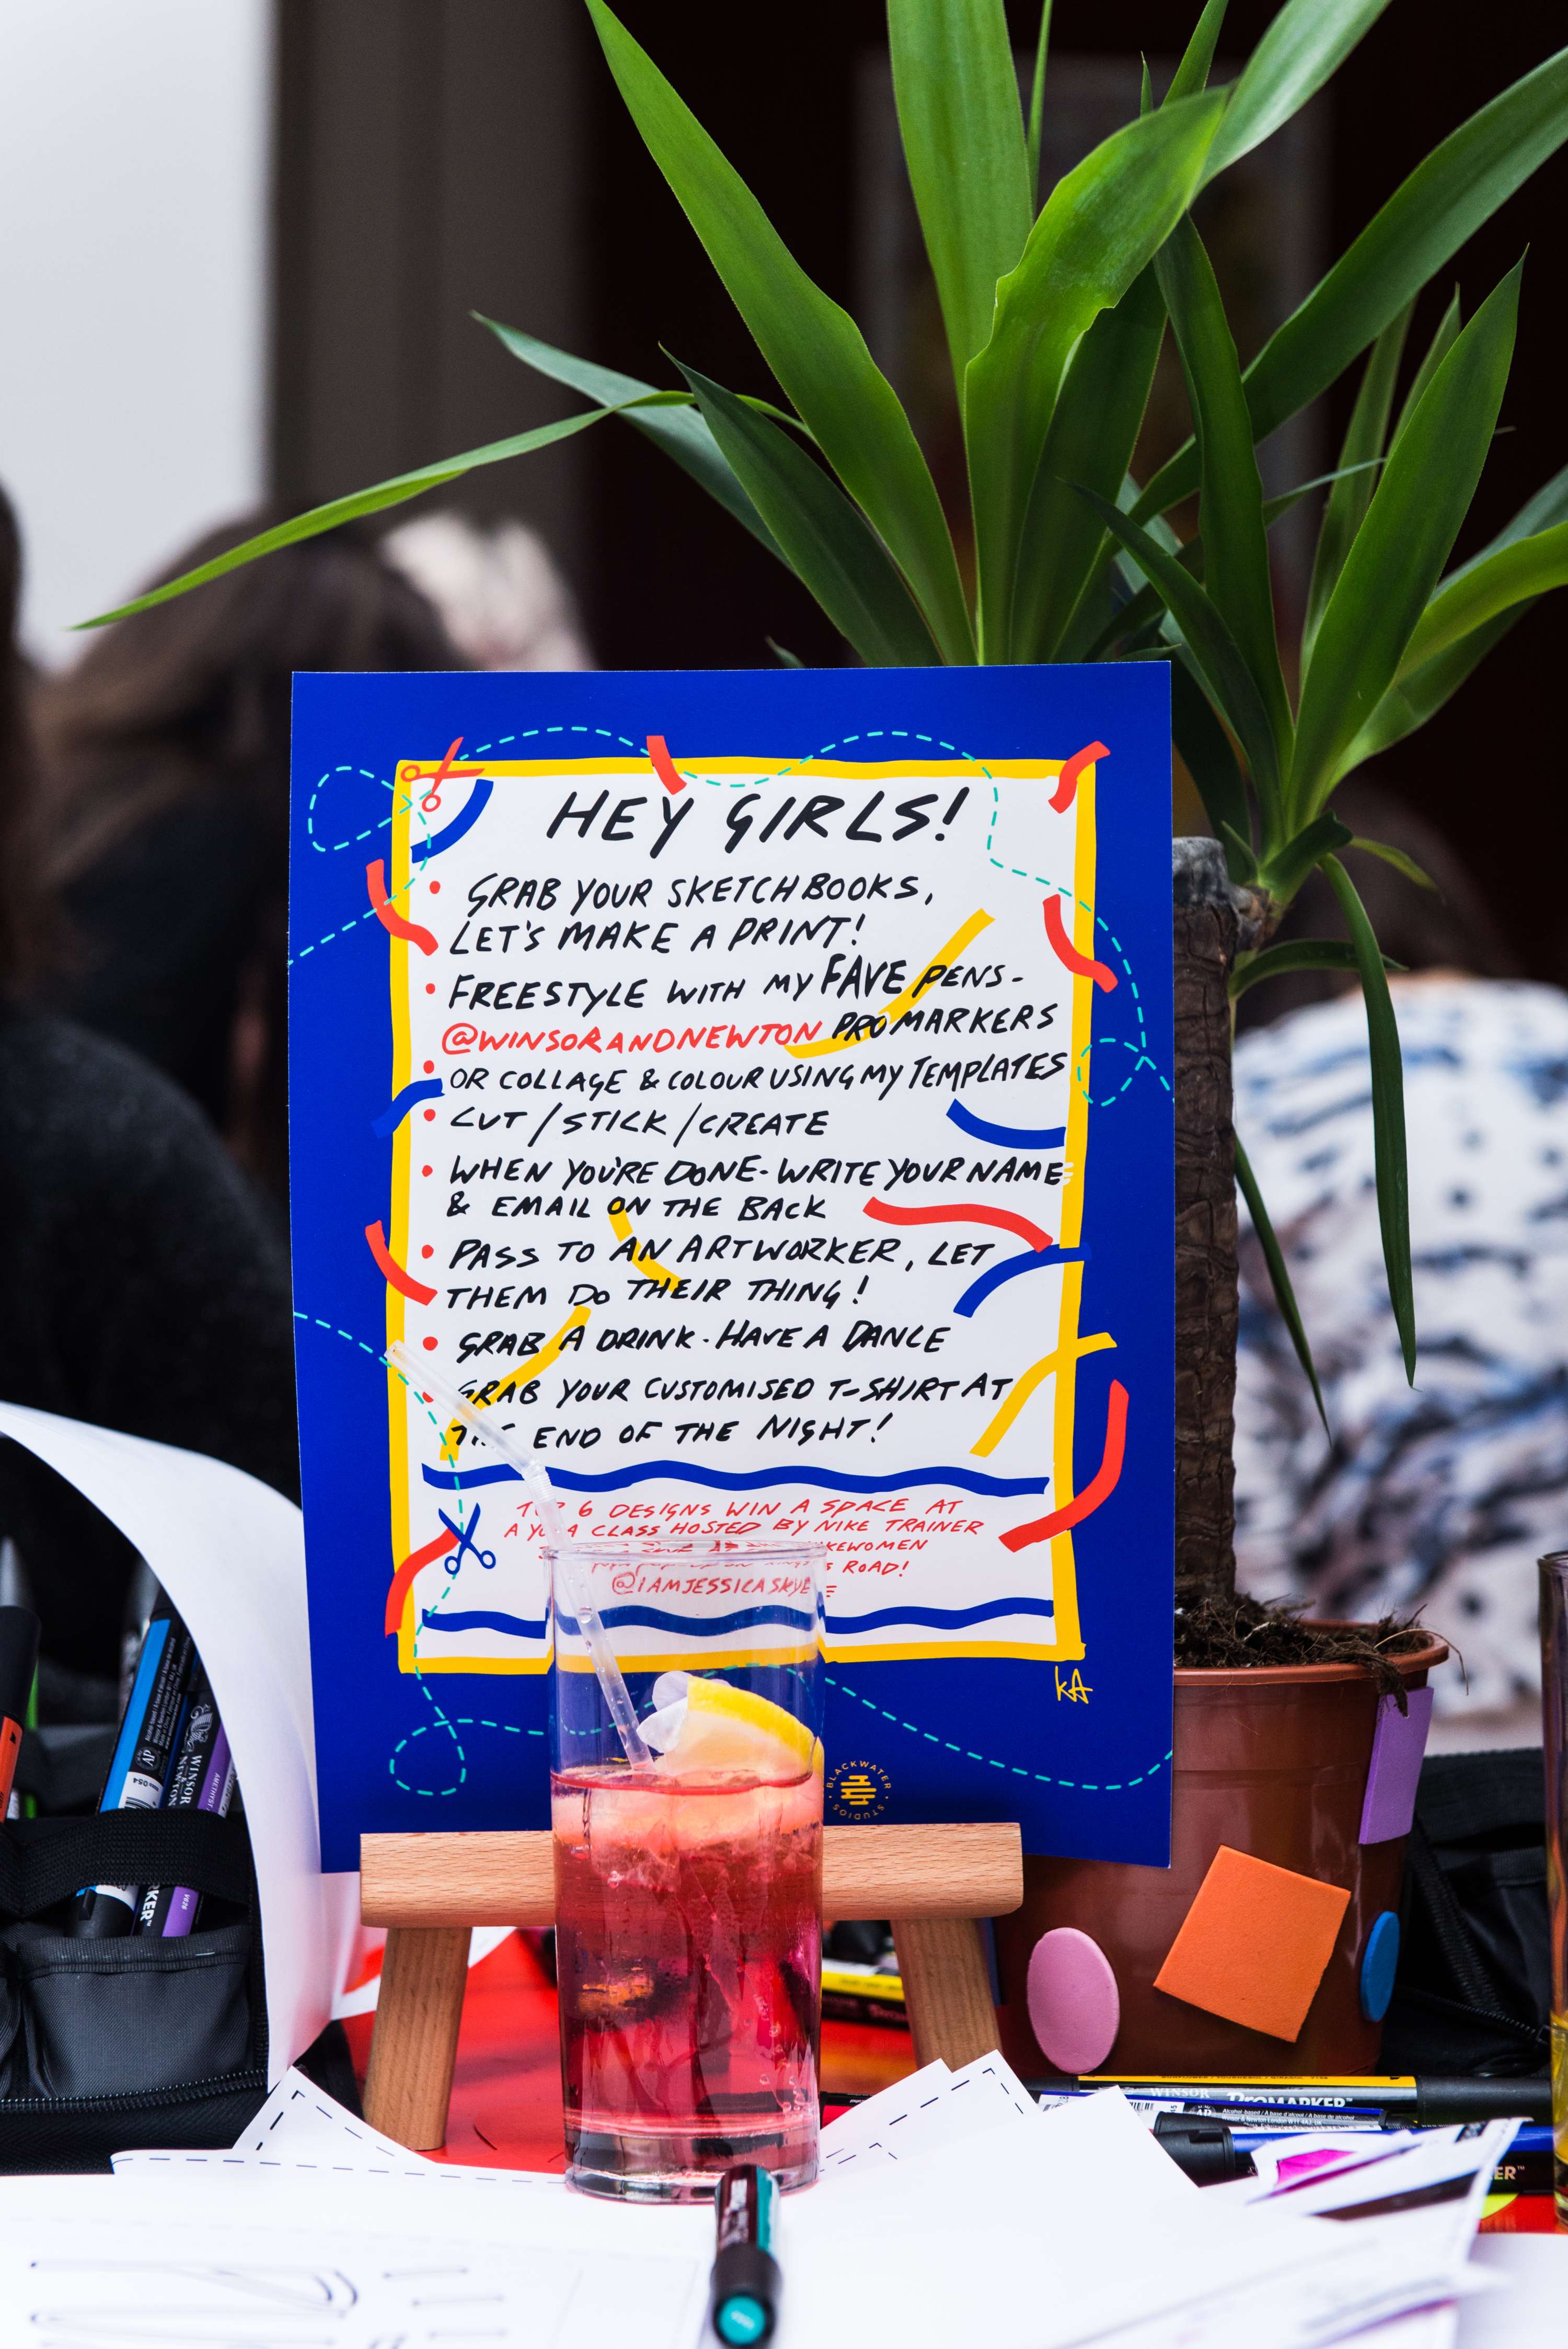 HEY GIRLS!
GRAB YOUR SKETCHBOOKS,
LET'S MAKE A PRINT!
FREESTYLE WITH MY FAVE PENS-
@WINSORANDNEWTON PROMARKERS
OR COLLAGE & COLOUR USING MY TEMPLATES
CUT / STICK / CREATE
WHEN YOU'RE DONE - WRITE YOUR NAME
& EMAIL ON THE BACK
PASS TO AN ARTWORKER, LET
THEM DO THEIR THING!
GRAB A DRINK - HAVE A DANCE
GRAB YOUR CUSTOMISED T-SHIRT AT
THE END OF THE NIGHT!
TOP 6 DESIGNS WIN A SPACE AT
A YOGA CLASS HOSTED BY NIKE TRAINER
KEWOMEN
ROAD!
@IAMJESSICASKYE
KA
BLACKWATER
STUDIOS
WINSOR
NEWTON
AMETHYST
KER™
WINSOR
PROMARKER™
ER™